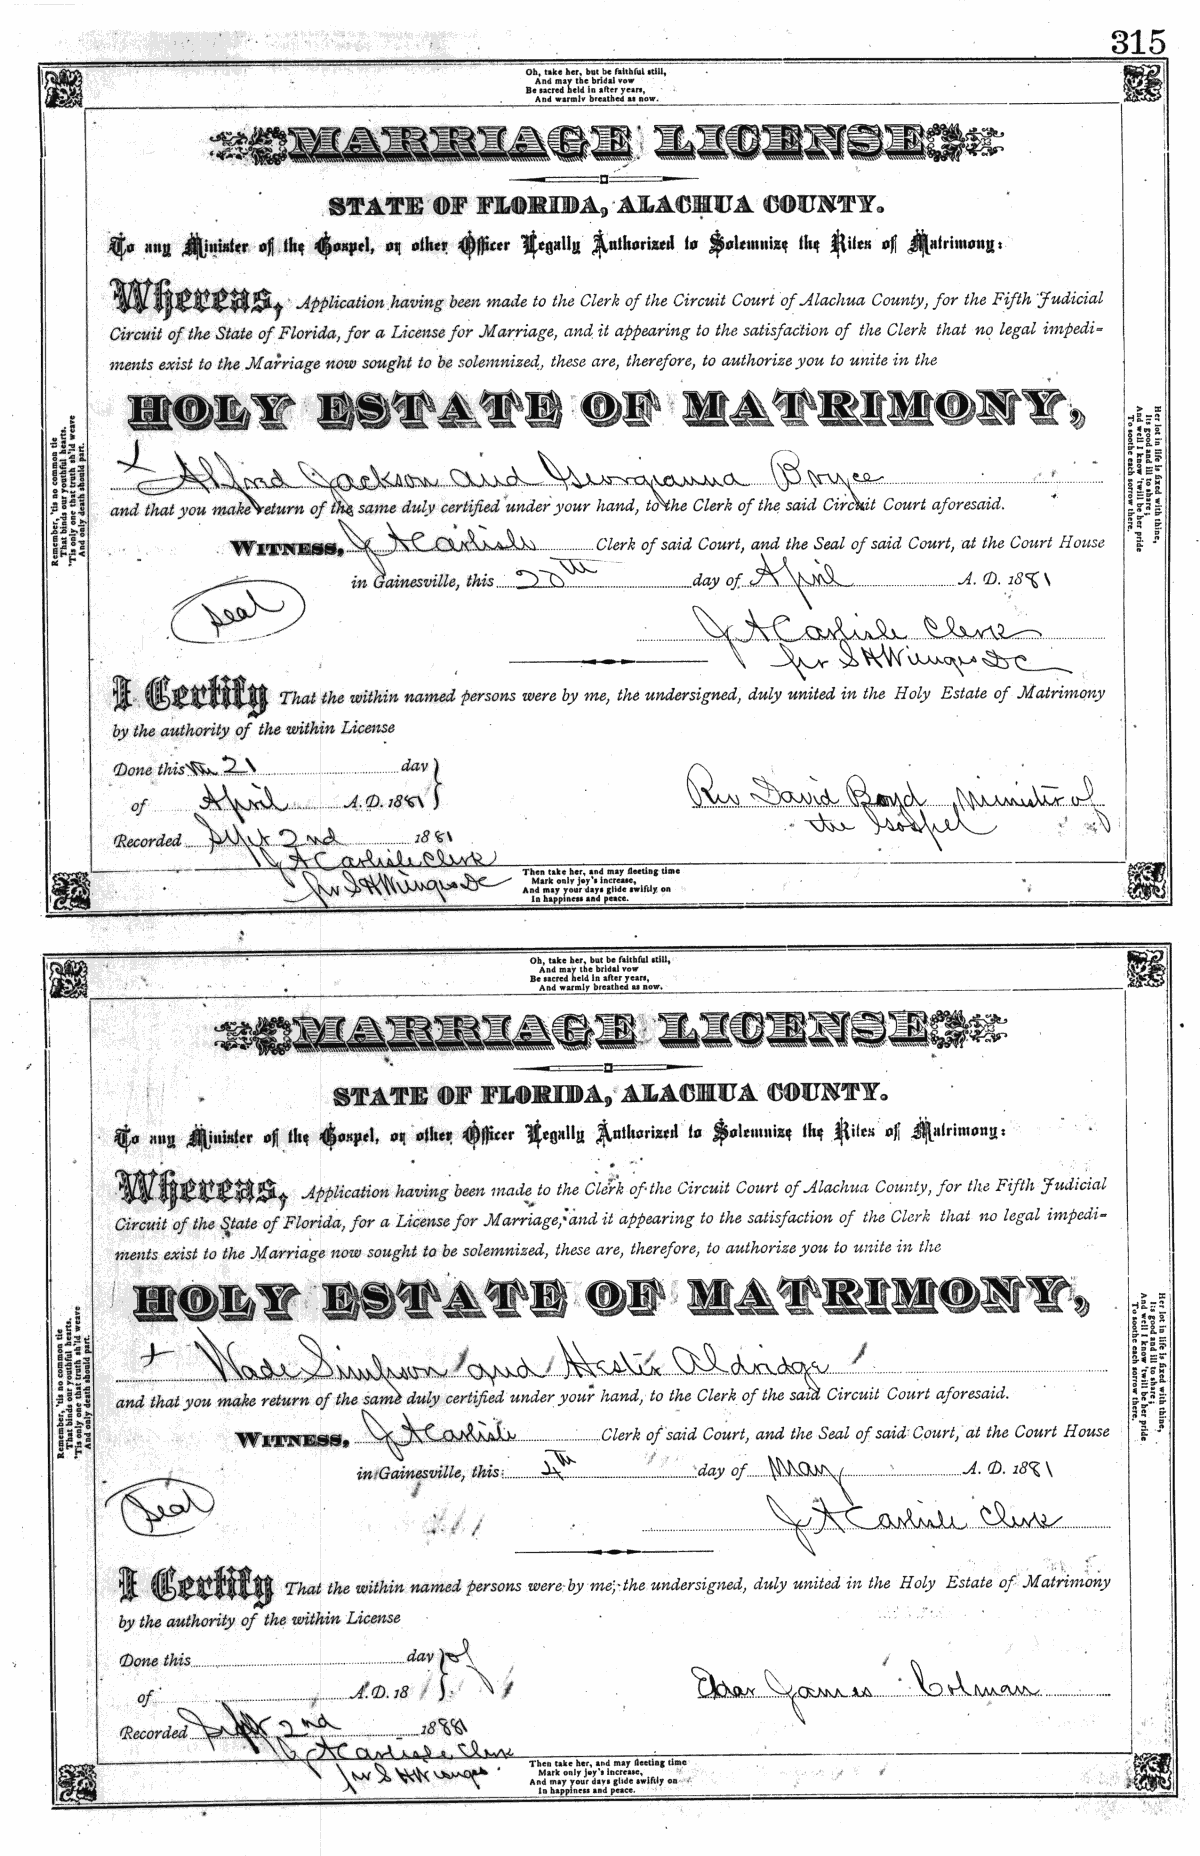 315
Oh, take her, but be faithful still,
And may the bridal vow
Be sacred held in after years,
And warmly breathed as now.
MARRIAGE LICENSE
STATE OF FLORIDA, ALACHUA COUNTY.
To any Minister of the Gospel, or other Officer Legally Authorized to Solemnize the Rites of Matrimony:
Whereas, Application having been made to the Clerk of the Circuit Court of Alachua County, for the Fifth Judicial
Circuit of the State of Florida, for a License for Marriage, and it appearing to the satisfaction of the Clerk that no legal impedi-
ments exist to the Marriage now sought to be solemnized, these are, therefore, to authorize you to unite in the
HOLY ESTATE OF MATRIMONY,
x Alfred Jackson and Georgianna Bryce
and that you make return of the same duly certified under your hand, to the Clerk of the said Circuit Court aforesaid.
WITNESS, J A Carlisle Clerk of said Court, and the Seal of said Court, at the Court House
in Gainesville, this 20th day of April A. D. 1881
Seal
J A Carlisle Clerk
per S H Wienges DC
I Certify That the within named persons were by me, the undersigned, duly united in the Holy Estate of Matrimony
by the authority of the within License
Done this the 21 day
of April A. D. 1881
Rev David Boyd Minister of
the Gospel
Recorded Sept 2nd 1881
J A Carlisle Clerk
per S H Wienges DC
Remember, 'tis no common tie
That binds our youthful hearts,
'Tis only one that truth sh'ld weave
And only death should part.
Her lot in life is fixed with thine,
Its good and ill to share;
And well I know 'twill be her pride
To soothe each sorrow there.
Then take her, and may fleeting time
Mark only joy's increase,
And may your days glide swiftly on
In happiness and peace.
Oh, take her, but be faithful still,
And may the bridal vow
Be sacred held in after years,
And warmly breathed as now.
MARRIAGE LICENSE
STATE OF FLORIDA, ALACHUA COUNTY.
To any Minister of the Gospel, or other Officer Legally Authorized to Solemnize the Rites of Matrimony:
Whereas, Application having been made to the Clerk of the Circuit Court of Alachua County, for the Fifth Judicial
Circuit of the State of Florida, for a License for Marriage, and it appearing to the satisfaction of the Clerk that no legal impedi-
ments exist to the Marriage now sought to be solemnized, these are, therefore, to authorize you to unite in the
HOLY ESTATE OF MATRIMONY,
x Wade Simpson and Hester Aldridge
and that you make return of the same duly certified under your hand, to the Clerk of the said Circuit Court aforesaid.
WITNESS, J A Carlisle Clerk of said Court, and the Seal of said Court, at the Court House
in Gainesville, this 4th day of May A. D. 1881
Seal
J A Carlisle Clerk
I Certify That the within named persons were by me, the undersigned, duly united in the Holy Estate of Matrimony
by the authority of the within License
Done this day of
of A. D. 18
James Colman
Recorded Sept 2nd 18881
J A Carlisle Clerk
per S H Wienges
Remember, 'tis no common tie
That binds our youthful hearts,
'Tis only one that truth sh'ld weave
And only death should part.
Her lot in life is fixed with thine,
Its good and ill to share;
And well I know 'twill be her pride
To soothe each sorrow there.
Then take her, and may fleeting time
Mark only joy's increase,
And may your days glide swiftly on
In happiness and peace.